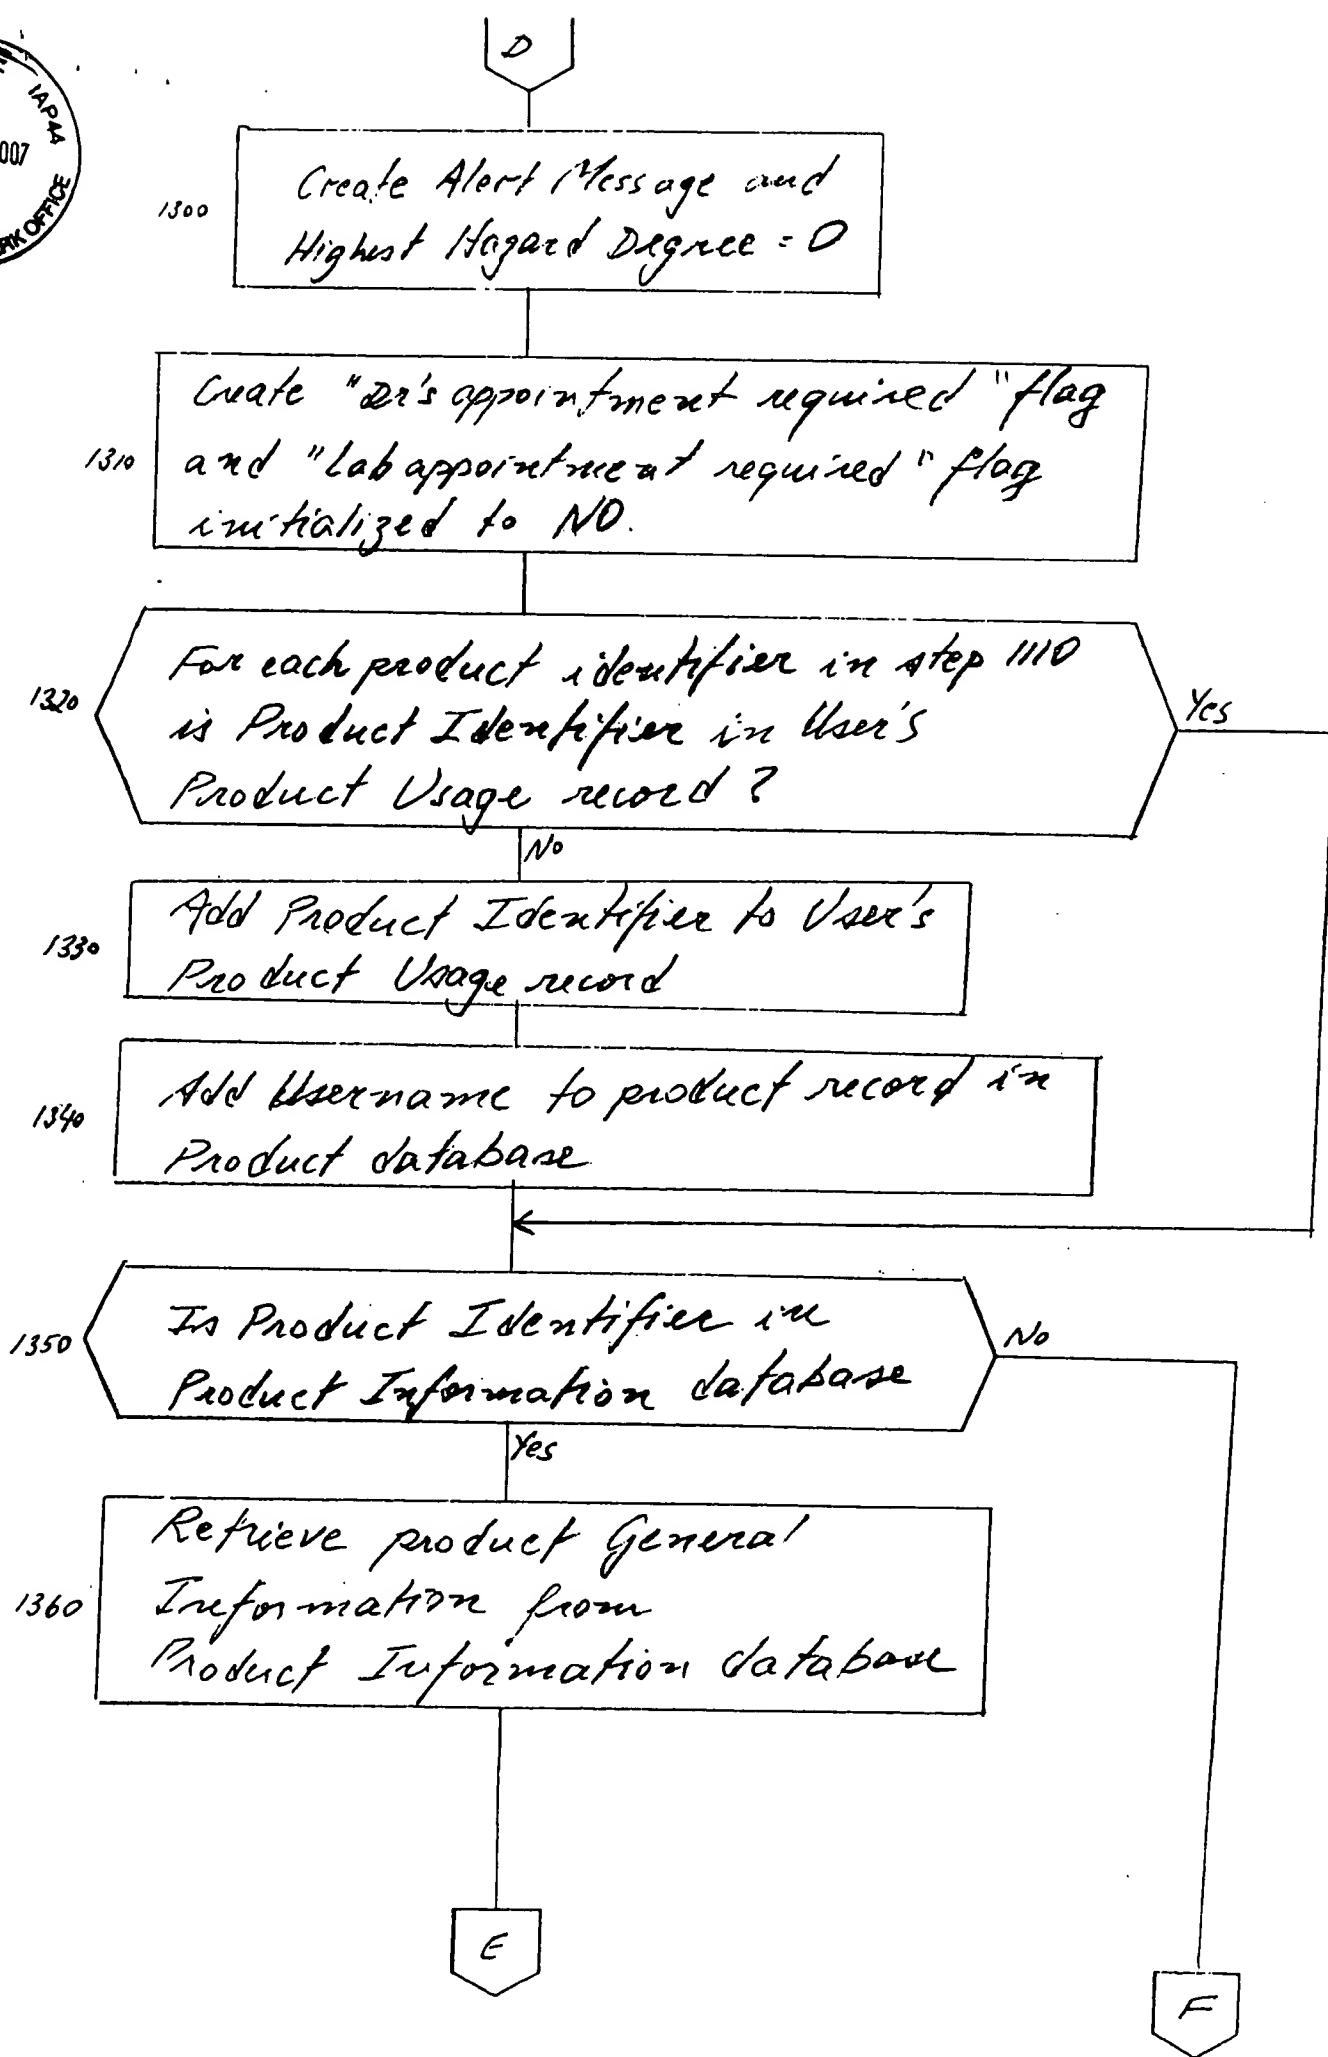 IAP44
007
OFFICE
D
1300
Create Alert Message and
Highest Hazard Degree = 0
1310
Create "Dr's appointment required" flag
and "lab appointment required" flag
initialized to NO.
1320
For each product identifier in step 1110
is Product Identifier in User's
Product Usage record?
Yes
No
1330
Add Product Identifier to User's
Product Usage record
1340
Add Username to product record in
Product database
1350
Is Product Identifier in
Product Information database
No
Yes
1360
Retrieve product General
Information from
Product Information database
E
F